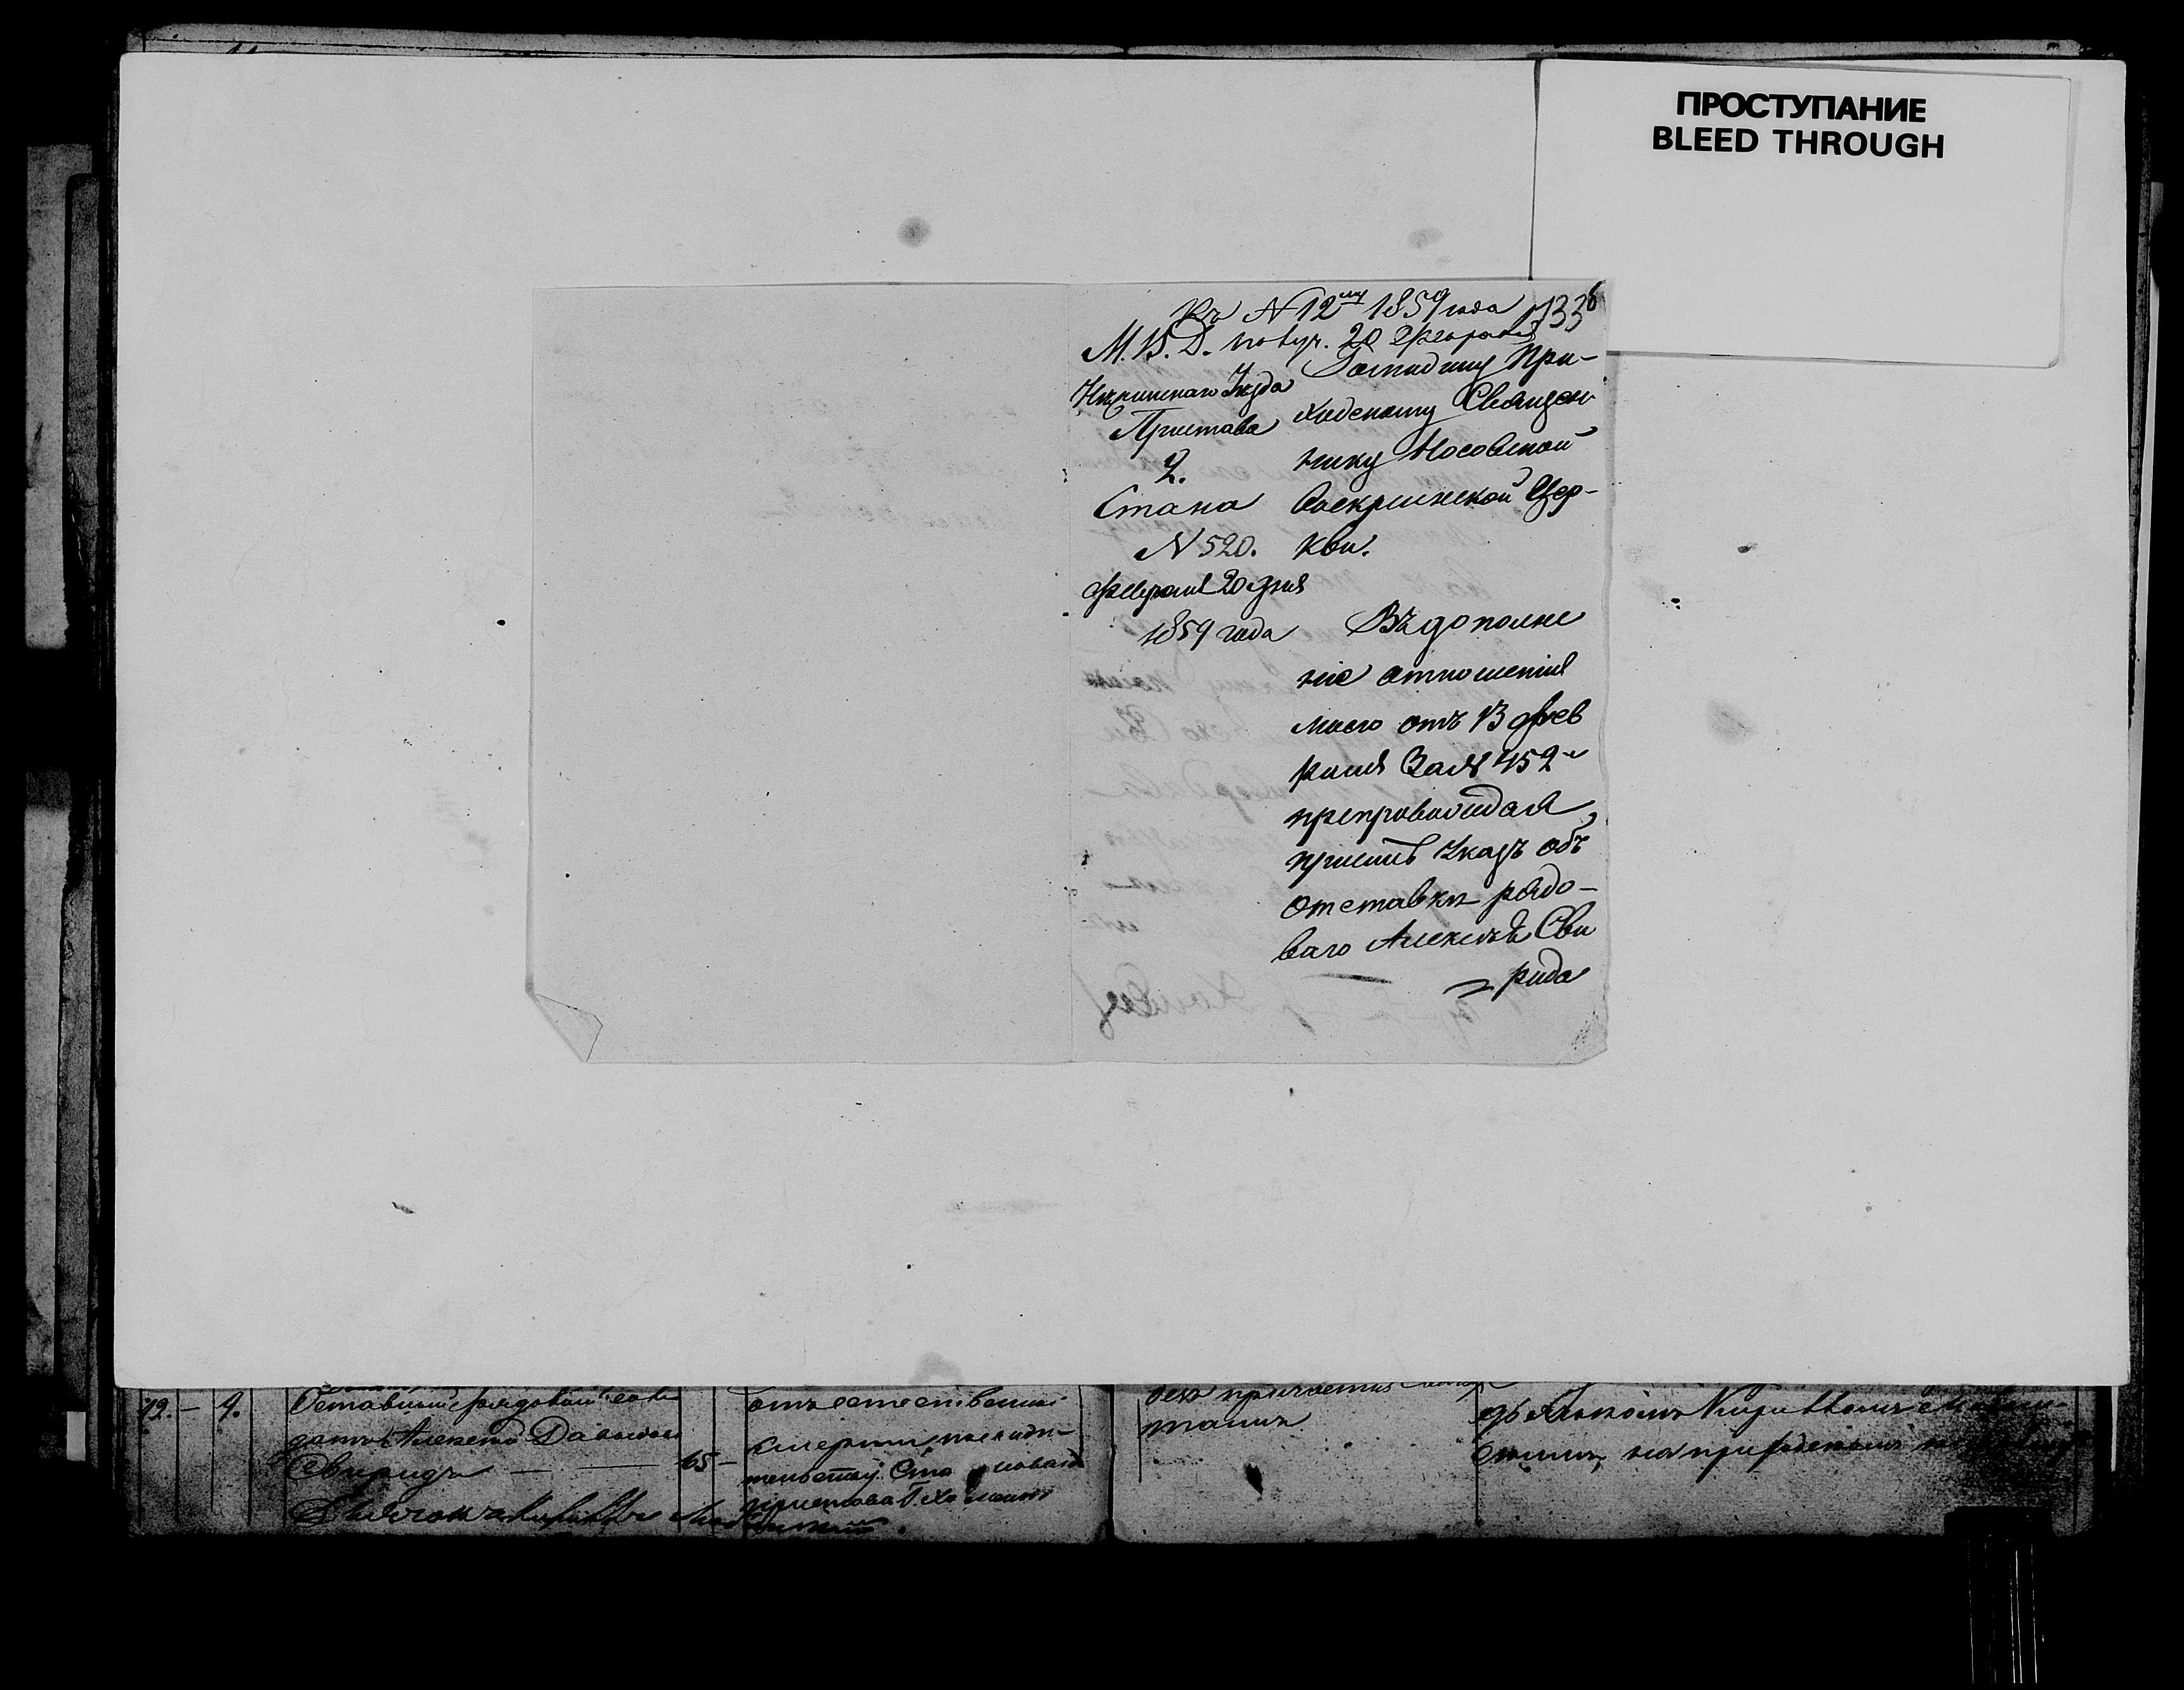 ПРОСТУПАНИЕ
BLEED THROUGH
Къ N 12му 1859 года 133
М. В. Д. получ. 20 февраля
Нѣжинскаго Уѣзда
Пристава
2.
Стана
N 520.
февраля 20 дня
1859 года
Господину При-
ходскому Священ
нику Носовской
Воскресенской Цер-
кви.
Въ дополне
ніе отношенія
моего отъ 13 фев
раля За N 452
препровождая
присемъ Указъ объ
отставкѣ рядо-
ваго Алексѣя Сви
рида
12. — 9.
Отставный рядовый сол
датъ Алексѣй Давыдовъ
Свиридъ — — 65 —
отъ естественной
смерти по свидѣ-
тельству
пристава Г.
безъ причастія
тамъ
съ Дьякономъ
на приходскомъ